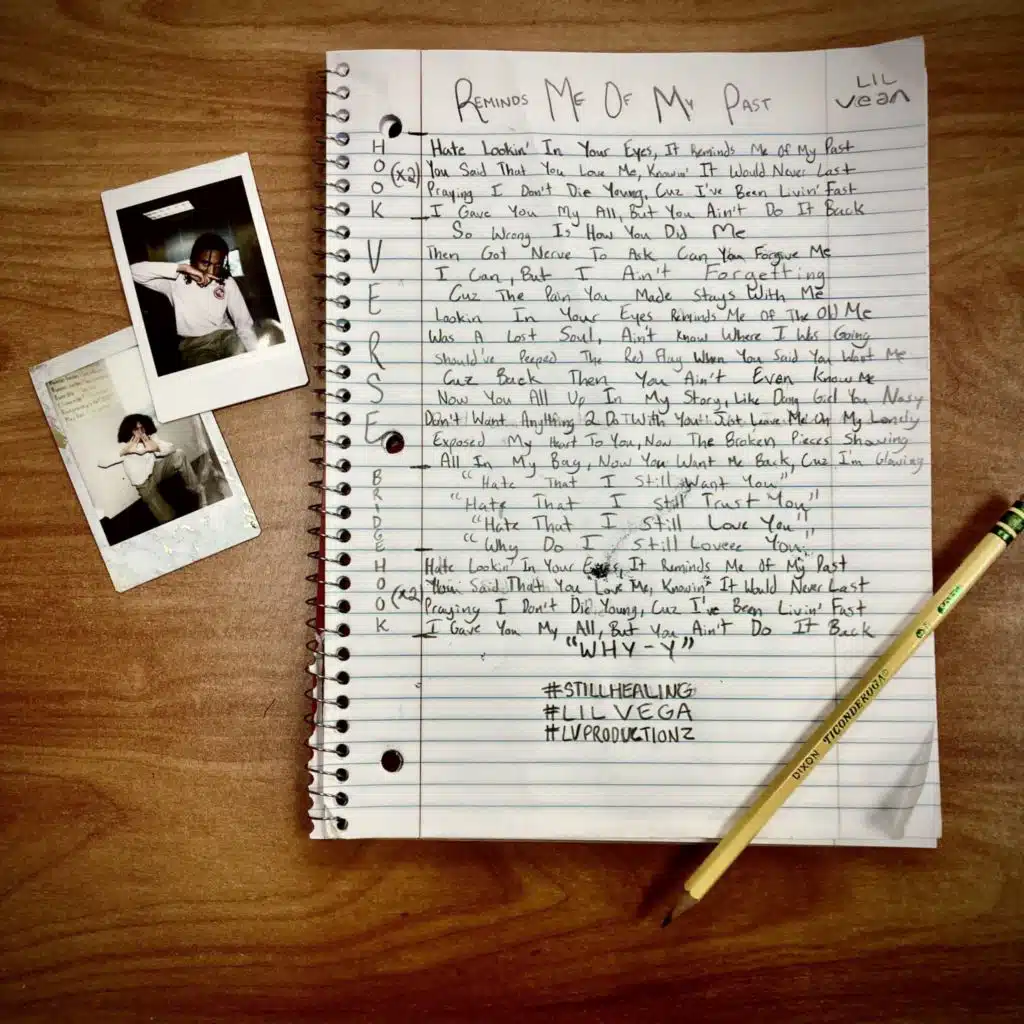 REMINDS ME OF MY PAST
LIL
vean
HOOK
(x2)
Hate Lookin' In Your Eyes, It Reminds Me Of My Past
You Said That You Love Me, Knowin' It Would Never Last
Praying I Don't Die Young, Cuz I've Been Livin' Fast
I Gave You My All, But You Ain't Do It Back
VERSE
So Wrong Is How You Did Me
Then Got Nerve To Ask Can You Forgive Me
I Can, But I Ain't Forgetting
Cuz The Pain You Made Stays With Me
Lookin In Your Eyes Reminds Me Of The Old Me
Was A Lost Soul, Ain't Know Where I Was Going
Should've Peeped The Red Flag When You Said You Want Me
Cuz Back Then You Ain't Even Know Me
Now You All Up In My Story, Like Dang Girl You Nosy
Don't Want Anything 2 Do With You! Just Leave Me On My Lonely
Exposed My Heart To You, Now The Broken Pieces Showing
All In My Bag, Now You Want Me Back, Cuz I'm Glowing
BRIDGE
"Hate That I Still Want You"
"Hate That I Still Trust You"
"Hate That I Still Love You"
"Why Do I Still Loveee You"
HOOK
(x2)
Hate Lookin' In Your Eyes, It Reminds Me Of My Past
You Said That You Love Me, Knowin' It Would Never Last
Praying I Don't Die Young, Cuz I've Been Livin' Fast
I Gave You My All, But You Ain't Do It Back
"WHY-Y"
#STILLHEALING
#LIL VEGA
#LVPRODUCTIONZ
DIXON TICONDEROGA